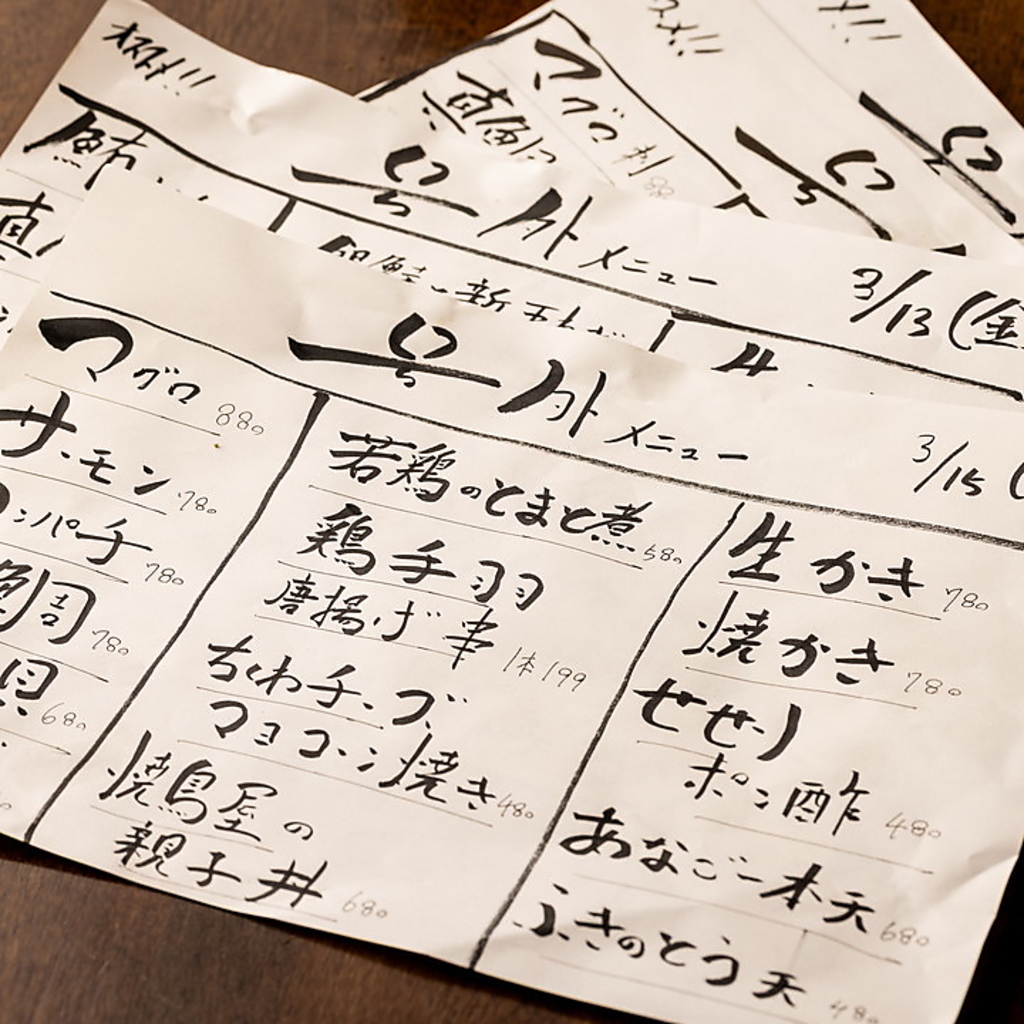 オススメ!!
マグロ 刺
号外メニュー 3/13(金
号外メニュー 3/15(
マグロ 880
サーモン 780
カンパチ 780
780
貝 680
若鶏のとまと煮 580
鶏手羽
唐揚げ串 1本199
ちくわチーズ
マヨコーン焼き 480
焼鳥屋の
親子丼 680
生かき 780
焼かき 780
せせり
ポン酢 480
あなご一本天 680
ふきのとう天 480